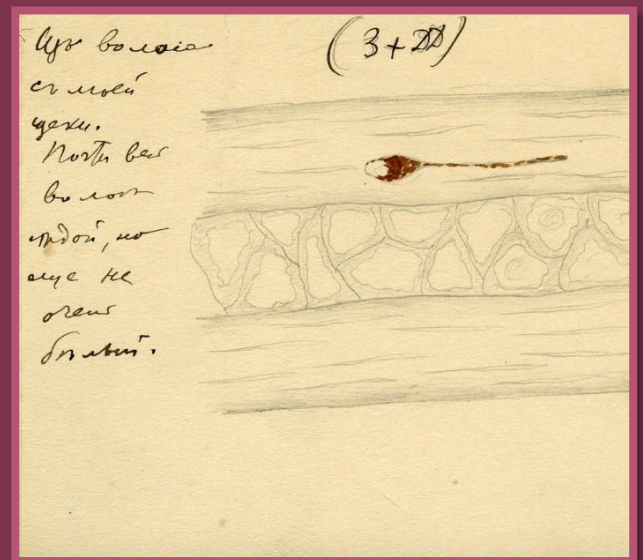 Изъ волоса
(3 + DD)
съ моей
щеки.
Почти весь
волосъ
сѣдой, но
еще не
очень
бѣлый.